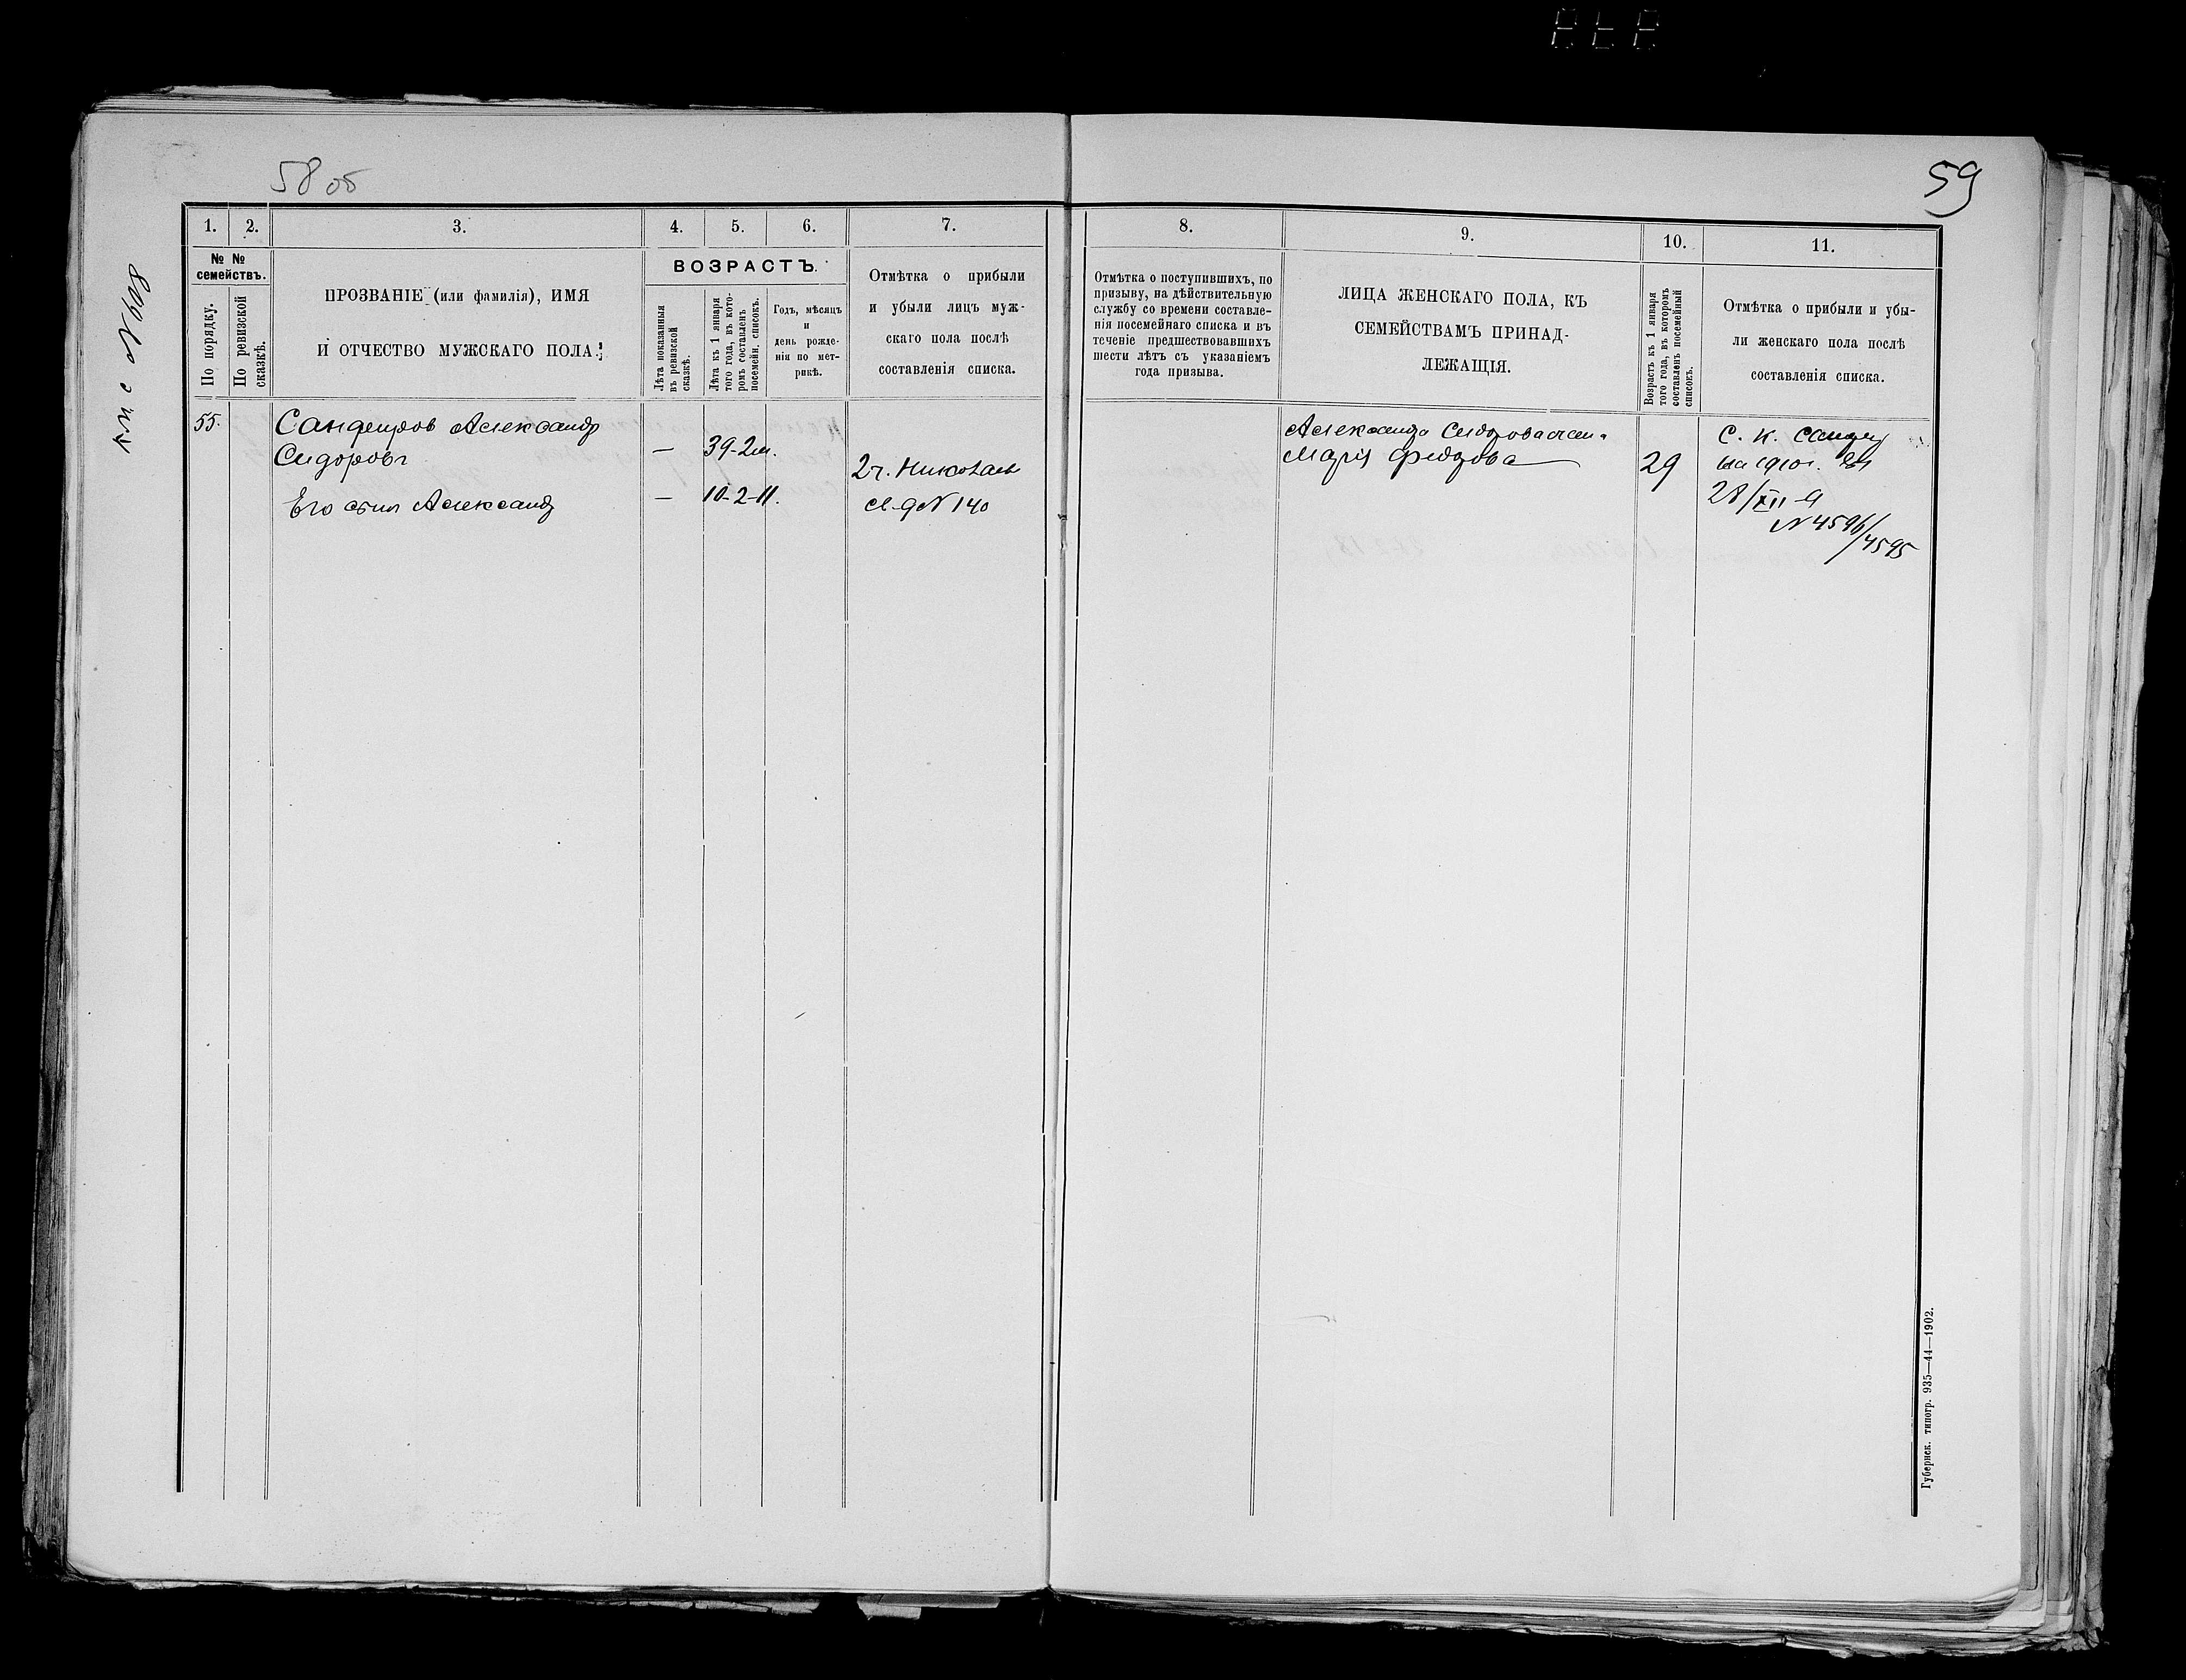 58 об
59
1.
2.
3.
4.
5.
6.
7.
8.
9.
10.
11.
№ №
семействъ.
По порядку.
По ревизской
сказкѣ.
ПРОЗВАНІЕ (или фамилія), ИМЯ
И ОТЧЕСТВО МУЖСКАГО ПОЛА.
ВОЗРАСТЪ.
Лѣта показанныя
въ ревизской
сказкѣ.
Лѣта къ 1 января
того года, въ кото-
ромъ составленъ
посемейн. списокъ.
Годъ, мѣсяцъ
и
день рожде-
нія по мет-
рикѣ.
Отмѣтка о прибыли
и убыли лицъ муж-
скаго пола послѣ
составленія списка.
Отмѣтка о поступившихъ, по
призыву, на дѣйствительную
службу со времени составле-
нія посемейнаго списка и въ
теченіе предшествовавшихъ
шести лѣтъ съ указаніемъ
года призыва.
ЛИЦА ЖЕНСКАГО ПОЛА, КЪ
СЕМЕЙСТВАМЪ ПРИНАД-
ЛЕЖАЩІЯ.
Возрастъ къ 1 января
того года, въ которомъ
составленъ посемейный
списокъ.
Отмѣтка о прибыли и убы-
ли женскаго пола послѣ
составленія списка.
55.
Александр
Сидоровъ
— 39-2м.
Его сынъ Александр
— 10-2-11.
2ч. Николаев
№ 140
Александра Сидорова
Марія
29
С. К.
на 1910г.
28/XII-9
№ 4596/4595
Губернск. типогр. 935—44—1902.